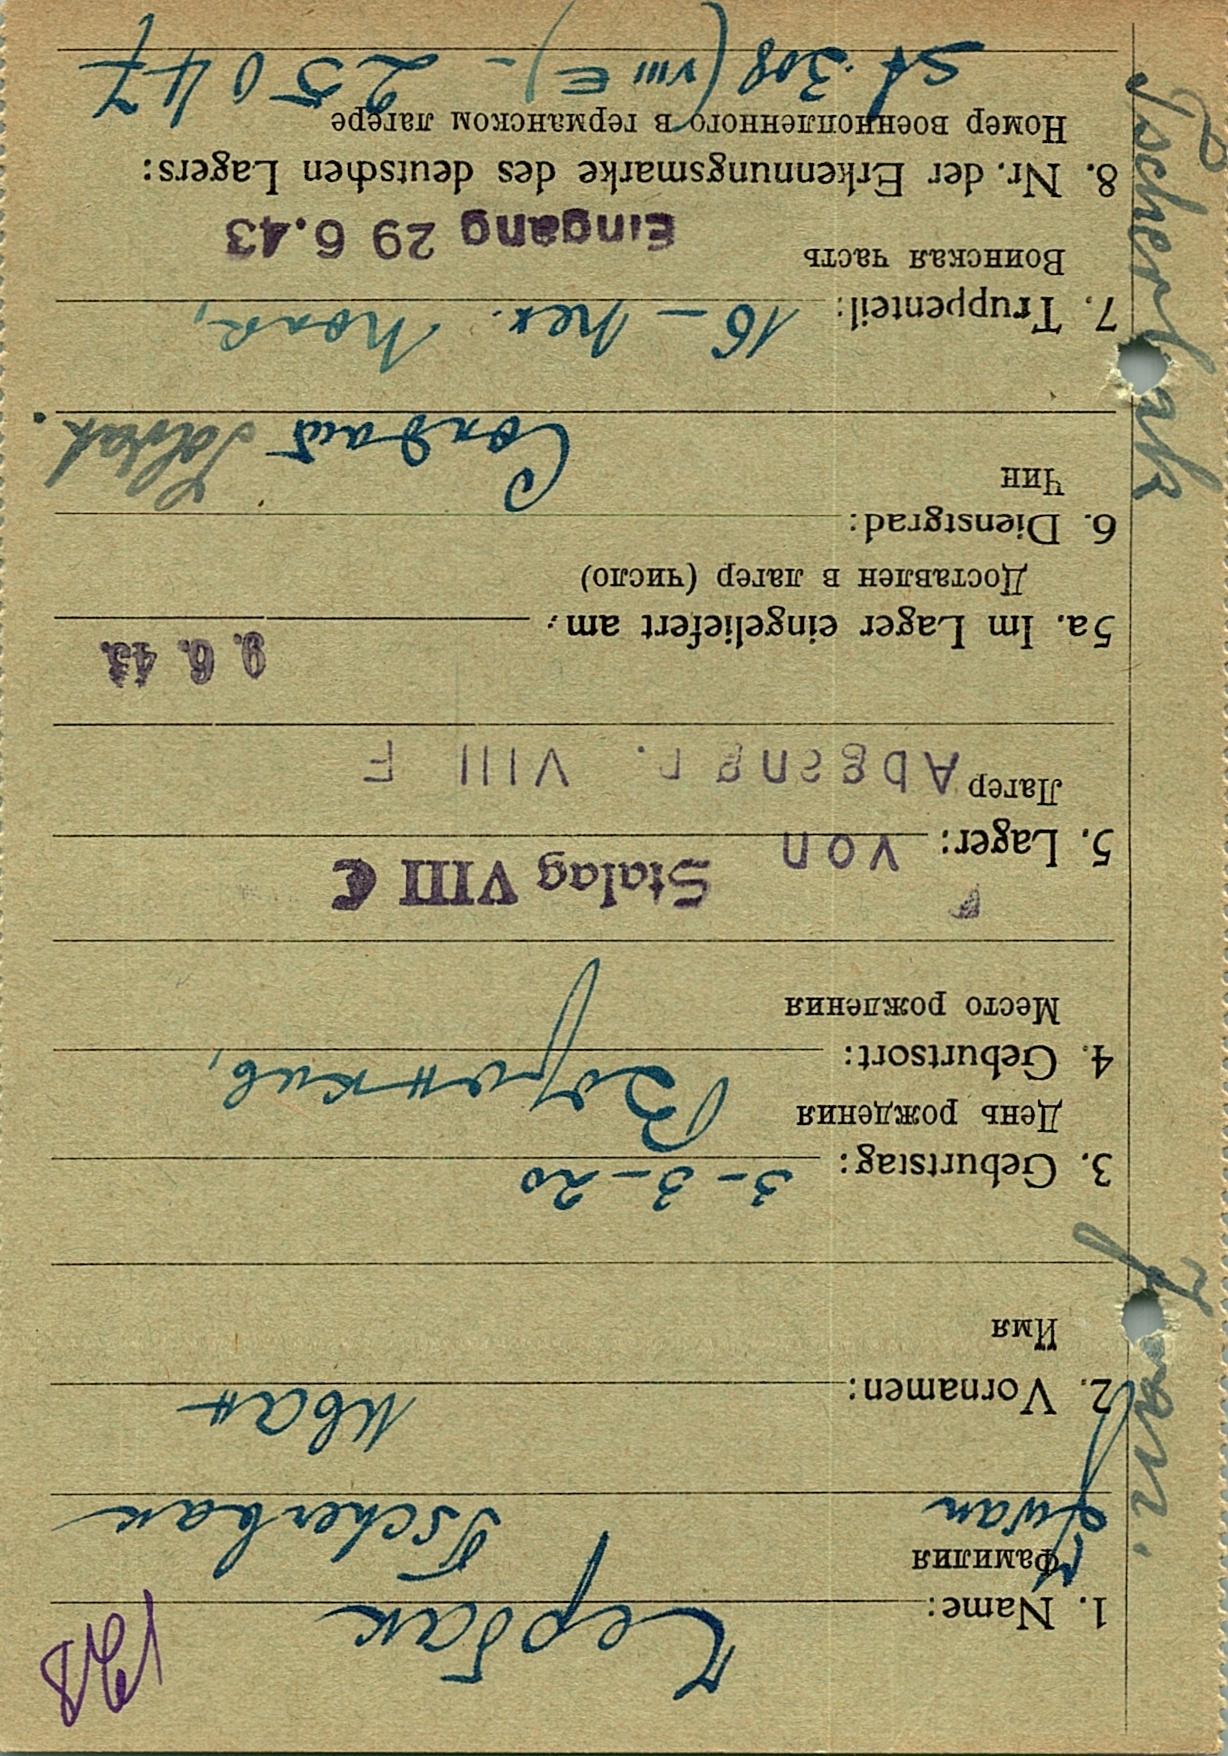 128
1. Name: Чербак
Фамилия
Iwan Tscherbak
2. Vornamen: Иван
Имя
3. Geburtstag: 3-3-20
День рождения
4. Geburtsort:
Место рождения
5. Lager: von Stalag VIII C
Лагер Abgang n. VIII F
9. 6. 43.
5a. Im Lager eingeliefert am:
Доставлен в лагер (число)
6. Dienstgrad:
Чин
Солдат Soldat.
7. Truppenteil: 16 - пех. полк,
Воинская часть
Eingang 29 6.43
8. Nr. der Erkennungsmarke des deutschen Lagers:
Номер военнопленного в германском лагере
St. 308 (VIII E) - 25047
Tscherbak Iwan.